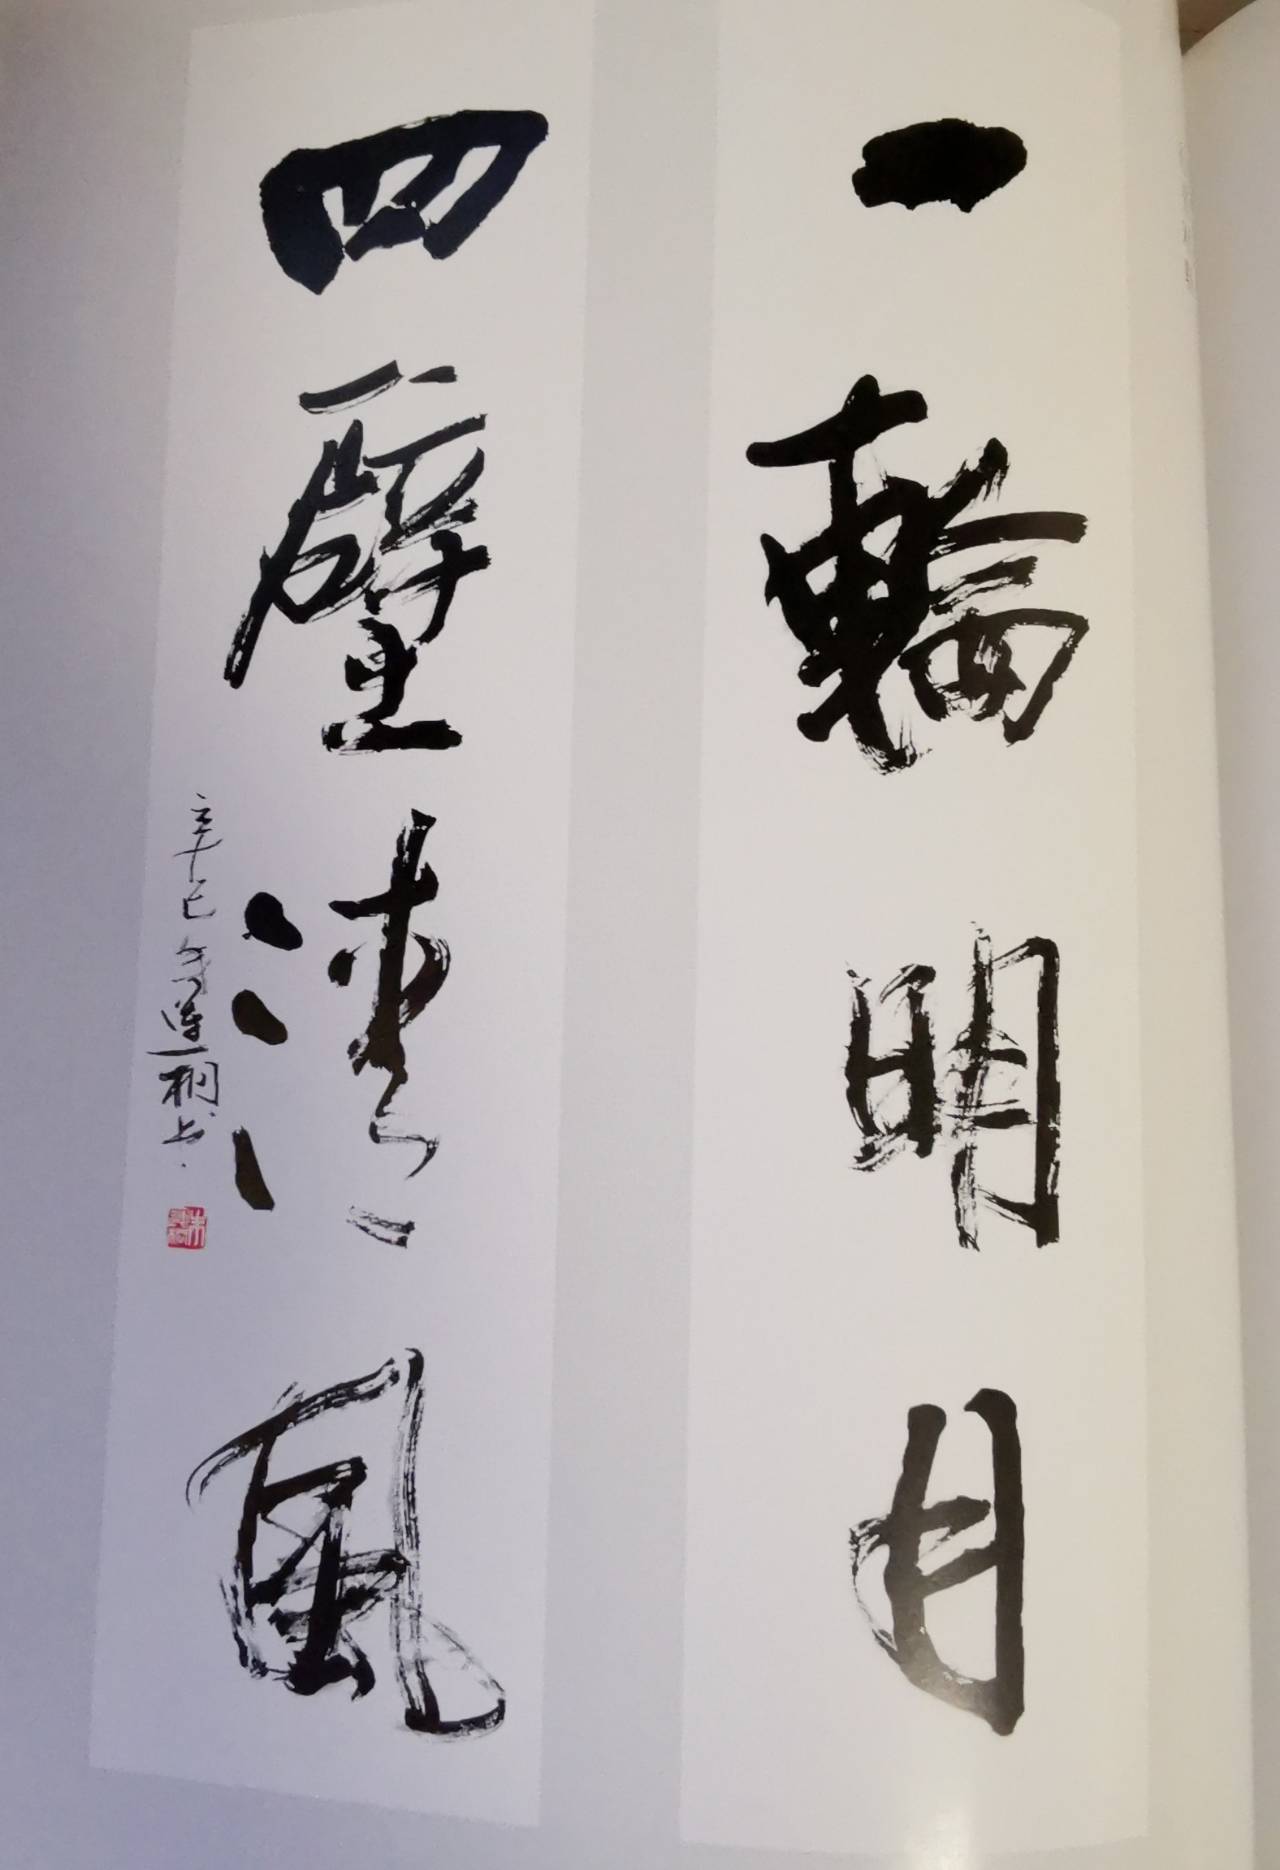 一轮明月
四壁清风
辛巳年